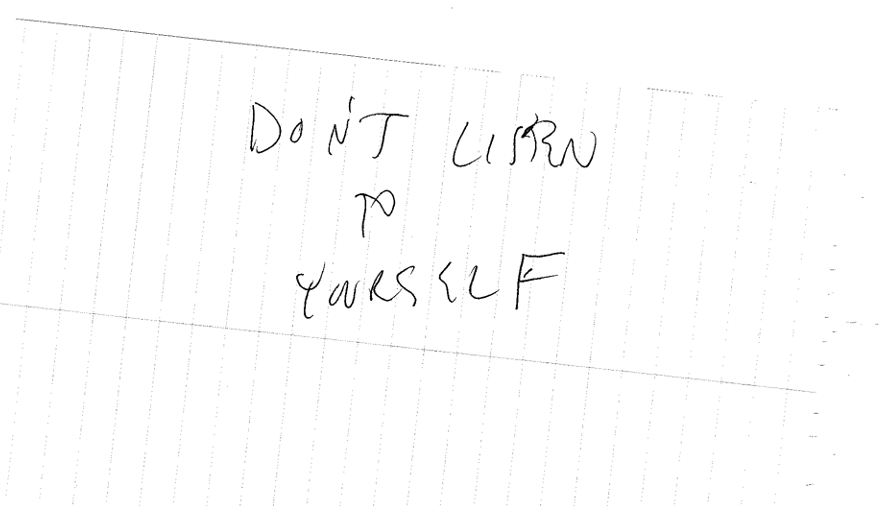 DON'T LISTEN
TO
YOURSELF